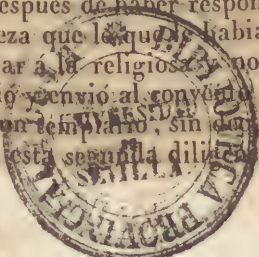 después de haber respon
eza que lo que le habia
ar á la religiosa y no
ó y envió al convento
on templario, sin
esta segunda diligen
BIBLIOTECA PROVINCIAL
UNIVERSIDAD
SEVILLA